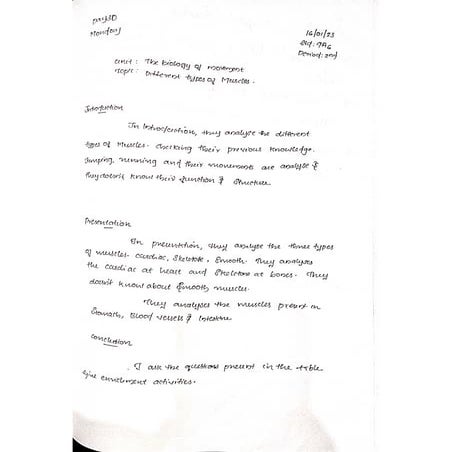 Day:30
Monday
16/01/23
Std: 9A6
Period: 2nd
Unit : The biology of movement
Topic : Different types of Muscles.
Introduction
In Introduction, they analyse the different
types of Muscles. Checking their previous knowledge.
Jumping, running and their movements are analyse &
they doesn't know their function & structure
Presentation
In presentation, they analyse the three types
of muscles. cardiac, Skeletole, Smooth. They analyses
the cardiac at heart and Skeletole at bones. They
doesn't know about Smooth muscles.
They analyses the muscles present in
Stomach, Blood vessels & Intestine
Conclusion
I ask the questions present in the table
give enrichment activities.